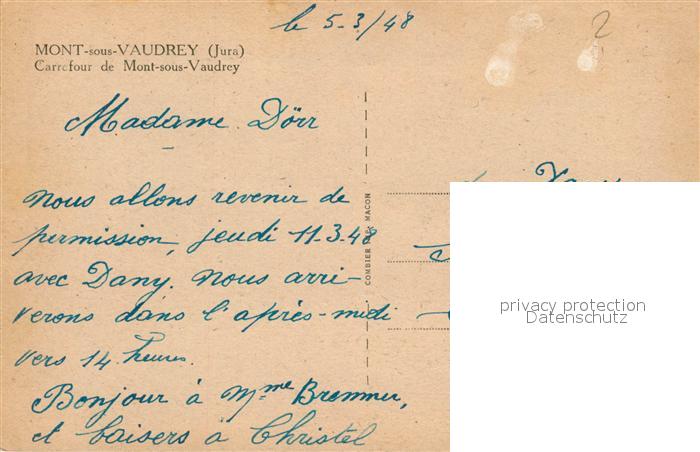 le 5-3/48
2
MONT-sous-VAUDREY (Jura)
Carrefour de Mont-sous-Vaudrey
Madame Dörr
nous allons revenir de
permission, jeudi 11-3-48
avec Dany. nous arri-
verons dans l'après-midi
vers 14 heures.
Bonjour à Mme Bremmer,
et baisers à Christel
COMBIER IMP. MACON
privacy protection
Datenschutz